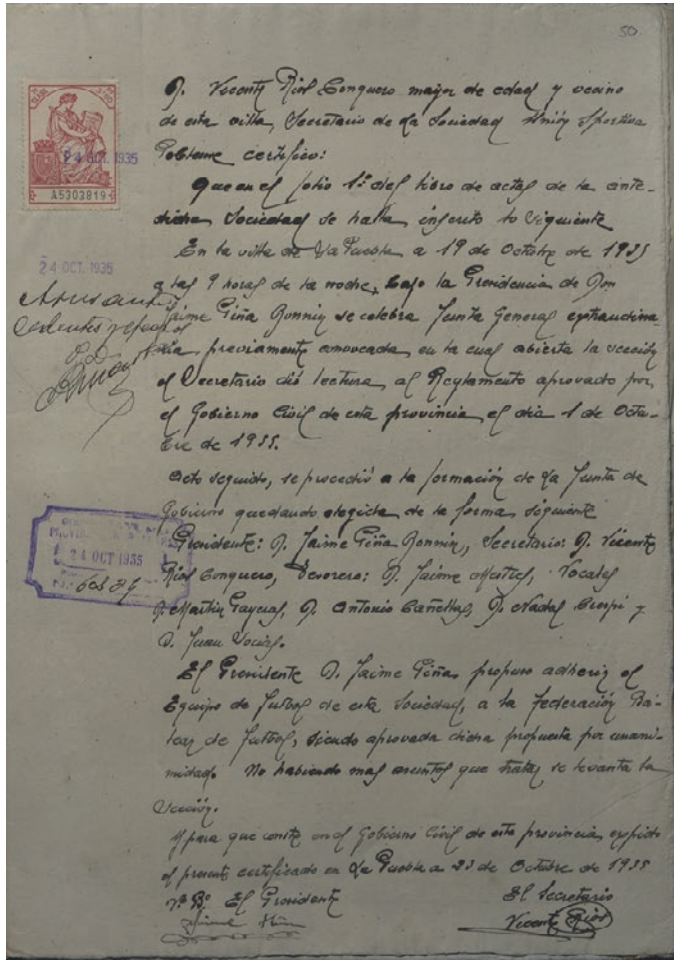 50.
D. Vicente Rios Conquero mayor de edad y vecino
de esta villa, Secretario de la Sociedad Unión Sportiva
Poblense certifico:
Que en el folio 1º del libro de actas de la ante-
dicha Sociedad se halla inserito lo siguiente
En la villa de La Puebla a 19 de Octubre de 1935
a las 9 horas de la noche, bajo la Presidencia de Don
Jaime Piña Bonnin se celebra Junta General extraudina-
ria, previamente convocada, en la cual abierta la sección
el Secretario dió lectura al Reglamento aprovado por
el Gobierno Civil de esta provincia, el dia 1 de Octu-
bre de 1935.
Acto seguido, se procedió a la formación de la Junta de
Gobierno quedando elegida de la forma siguiente
Presidente: D. Jaime Piña Bonnin, Secretario: D. Vicente
Rios Conquero, Tesorero: D. Jaime Mestres, Vocales
D. Martin Payeras, D. Antonio Cañellas, D. Nadal Crespi y
D. Juan Socias.
El Presidente D. Jaime Piña, propuso adherir el
Equipo de futbol de esta Sociedad, a la federación Ba-
lear de futbol, siendo aprovada dicha propuesta por unani-
midad. No habiendo mas asuntos que tratar se levanta la
sección.
Y para que conste en el Gobierno Civil de esta provincia, expido
el presente certificado en La Puebla a 23 de Octubre de 1935
Vº Bº El Presidente
El Secretario
Jaime Piña
Vicente Rios
24 OCT. 1935
A5303819
24 OCT. 1935
24 OCT 1935